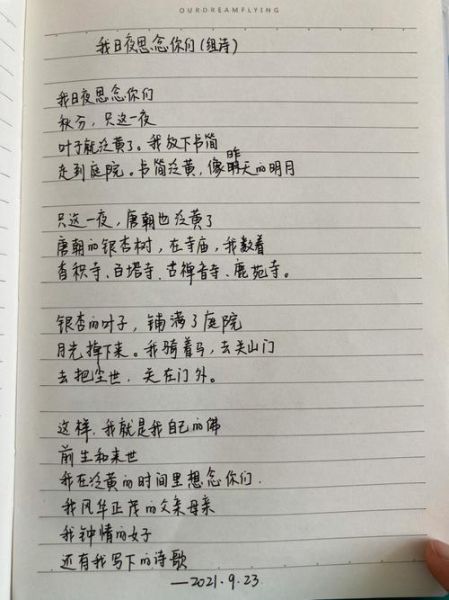 OURDREAMFLYING
我日夜思念你们(组诗)
我日夜思念你们
秋分，只这一夜
叶子就泛黄了。我放下书简
走到庭院。书简泛黄，像昨天的明月
只这一夜，唐朝也泛黄了
唐朝的银杏树，在寺庙，我数着
香积寺、白塔寺、古禅音寺、鹿苑寺。
银杏的叶子，铺满了庭院
月光掉下来。我骑着马，去关山门
去把尘世，关在门外。
这样，我就是我自己的佛
前生和来世
我在泛黄的时间里想念你们.
我风华正茂的父亲母亲
我钟情的女子
还有我写下的诗歌
—2021.9.23